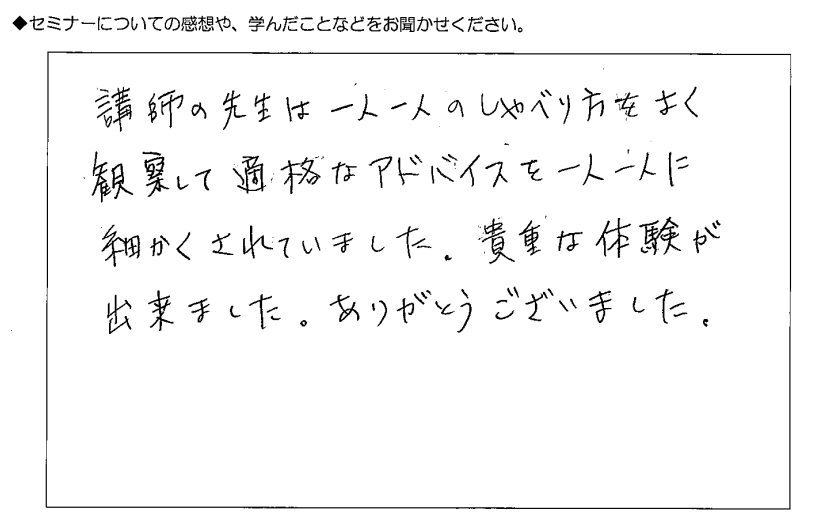 ◆セミナーについての感想や、学んだことなどをお聞かせください。
講師の先生は一人一人のしゃべり方をよく
観察して適格なアドバイスを一人一人に
細かくされていました。貴重な体験が
出来ました。ありがとうございました。